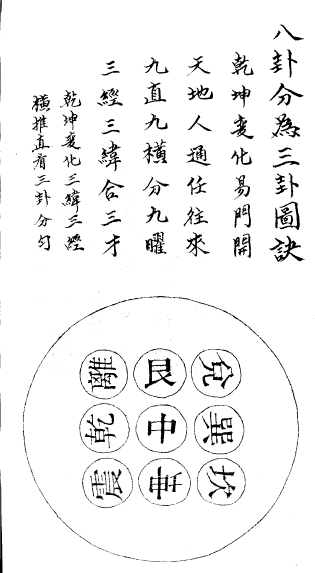 八卦分為三卦圖訣
乾坤變化易門開
天地人通任往來
九直九橫分九曜
三經三緯合三才
乾坤變化三緯三經
橫推直看三卦分勻
兌
巽
坎
艮
中
坤
離
乾
震